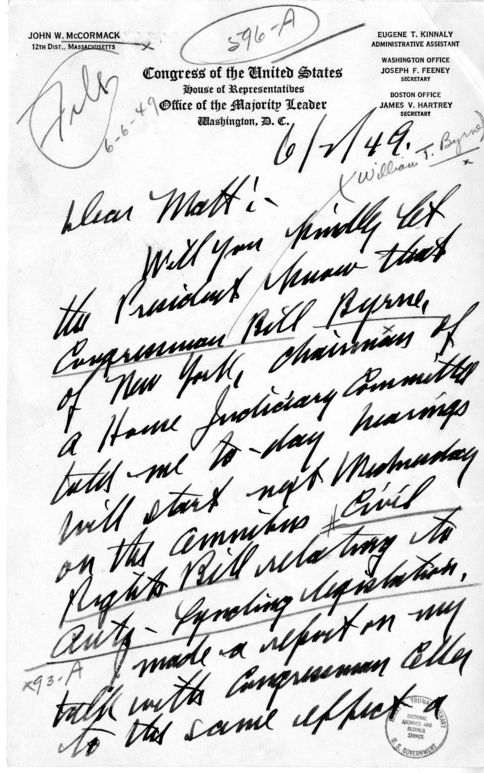 JOHN W. McCORMACK
12TH DIST., MASSACHUSETTS
x
596-A
EUGENE T. KINNALY
ADMINISTRATIVE ASSISTANT
WASHINGTON OFFICE
JOSEPH F. FEENEY
SECRETARY
BOSTON OFFICE
JAMES V. HARTREY
SECRETARY
Congress of the United States
House of Representatives
Office of the Majority Leader
Washington, D. C.
File
6-6-49
6/2/49.
x William T. Byrne
x
Dear Matt:-
Will you kindly let
the President know that
Congressman Bill Byrne,
of New York, chairman of
a House Judiciary Committee
told me to-day hearings
will start next Wednesday
on the Omnibus Civil
Rights Bill relating to
Anti-Lynching legislation.
x93-A
made a report on my
talk with Congressman Celler
to the same effect a
NATIONAL
ARCHIVES AND
RECORDS
SERVICE
U. S. GOVERNMENT